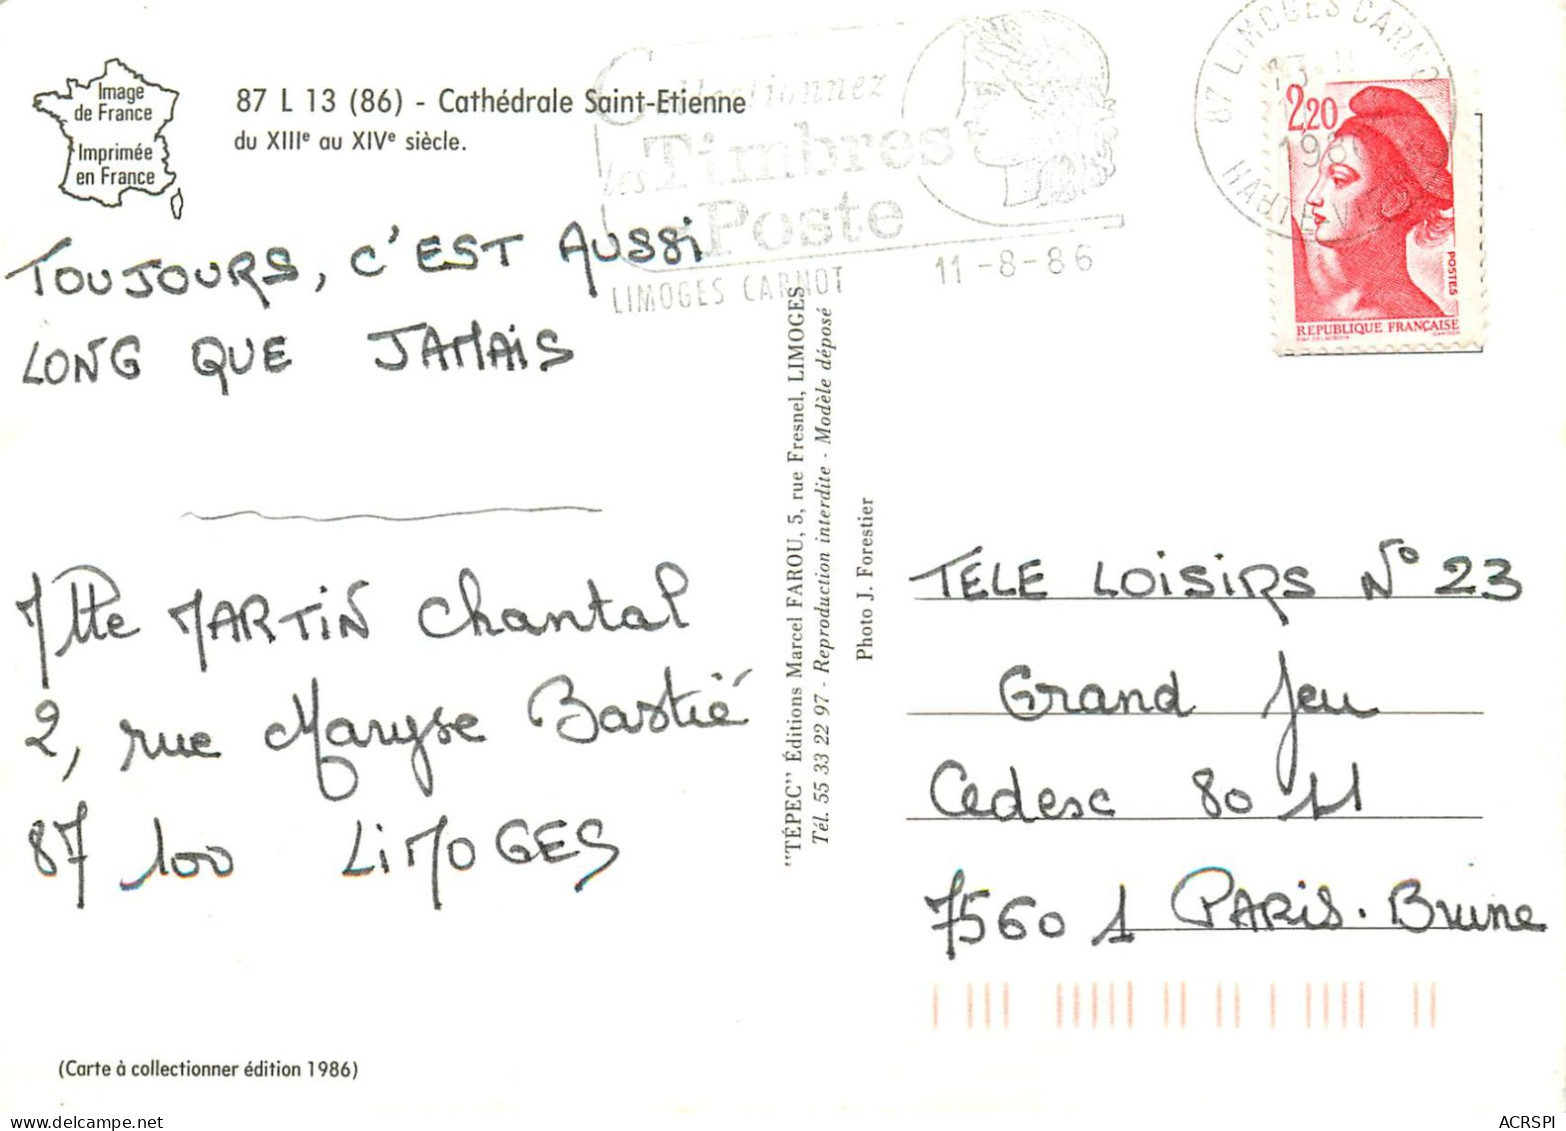 Image
de France
Imprimée
en France
87 L 13 (86) - Cathédrale Saint-Etienne
du XIIIe au XIVe siècle.
Collectionnez
les Timbres
Poste
LIMOGES CARNOT
11-8-86
87 LIMOGES CARNOT
2,20
POSTES
REPUBLIQUE FRANÇAISE
TOUJOURS, C'EST AUSSI
LONG QUE JAMAIS
Mlle MARTIN Chantal
2, rue Maryse Bastié
87 100 LIMOGES
"TÉPEC" Éditions Marcel FAROU, 5, rue Fresnel, LIMOGES
Tél. 55 33 22 97 - Reproduction interdite - Modèle déposé
Photo J. Forestier
TELE LOISIRS N° 23
Grand Jeu
Cedesc 80 11
75601 PARIS. Brune
(Carte à collectionner édition 1986)
ACRSPI